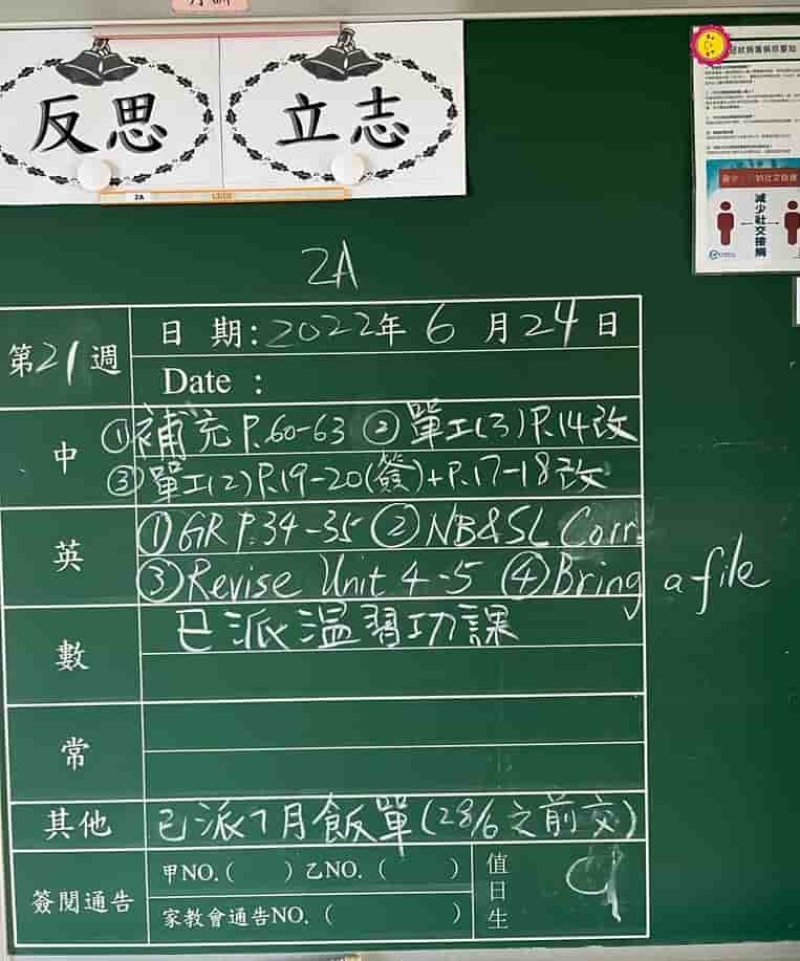 反思
立志
2A
減少社交接觸
2A
第21週
日 期:2022年 6 月24日
Date :
中
①補充 P.60-63 ② 單工(3) P.14改
③單工(2)P.19-20(簽)+P.17-18改
英
①GR P.34-35 ②NB&SL Corr.
③Revise Unit 4-5 ④Bring a file
數
已派溫習功課
常
其他
已派7月飯單(28/6之前交)
簽閱通告
甲NO.( ) 乙NO. ( )
家教會通告NO. ( )
值日生
9